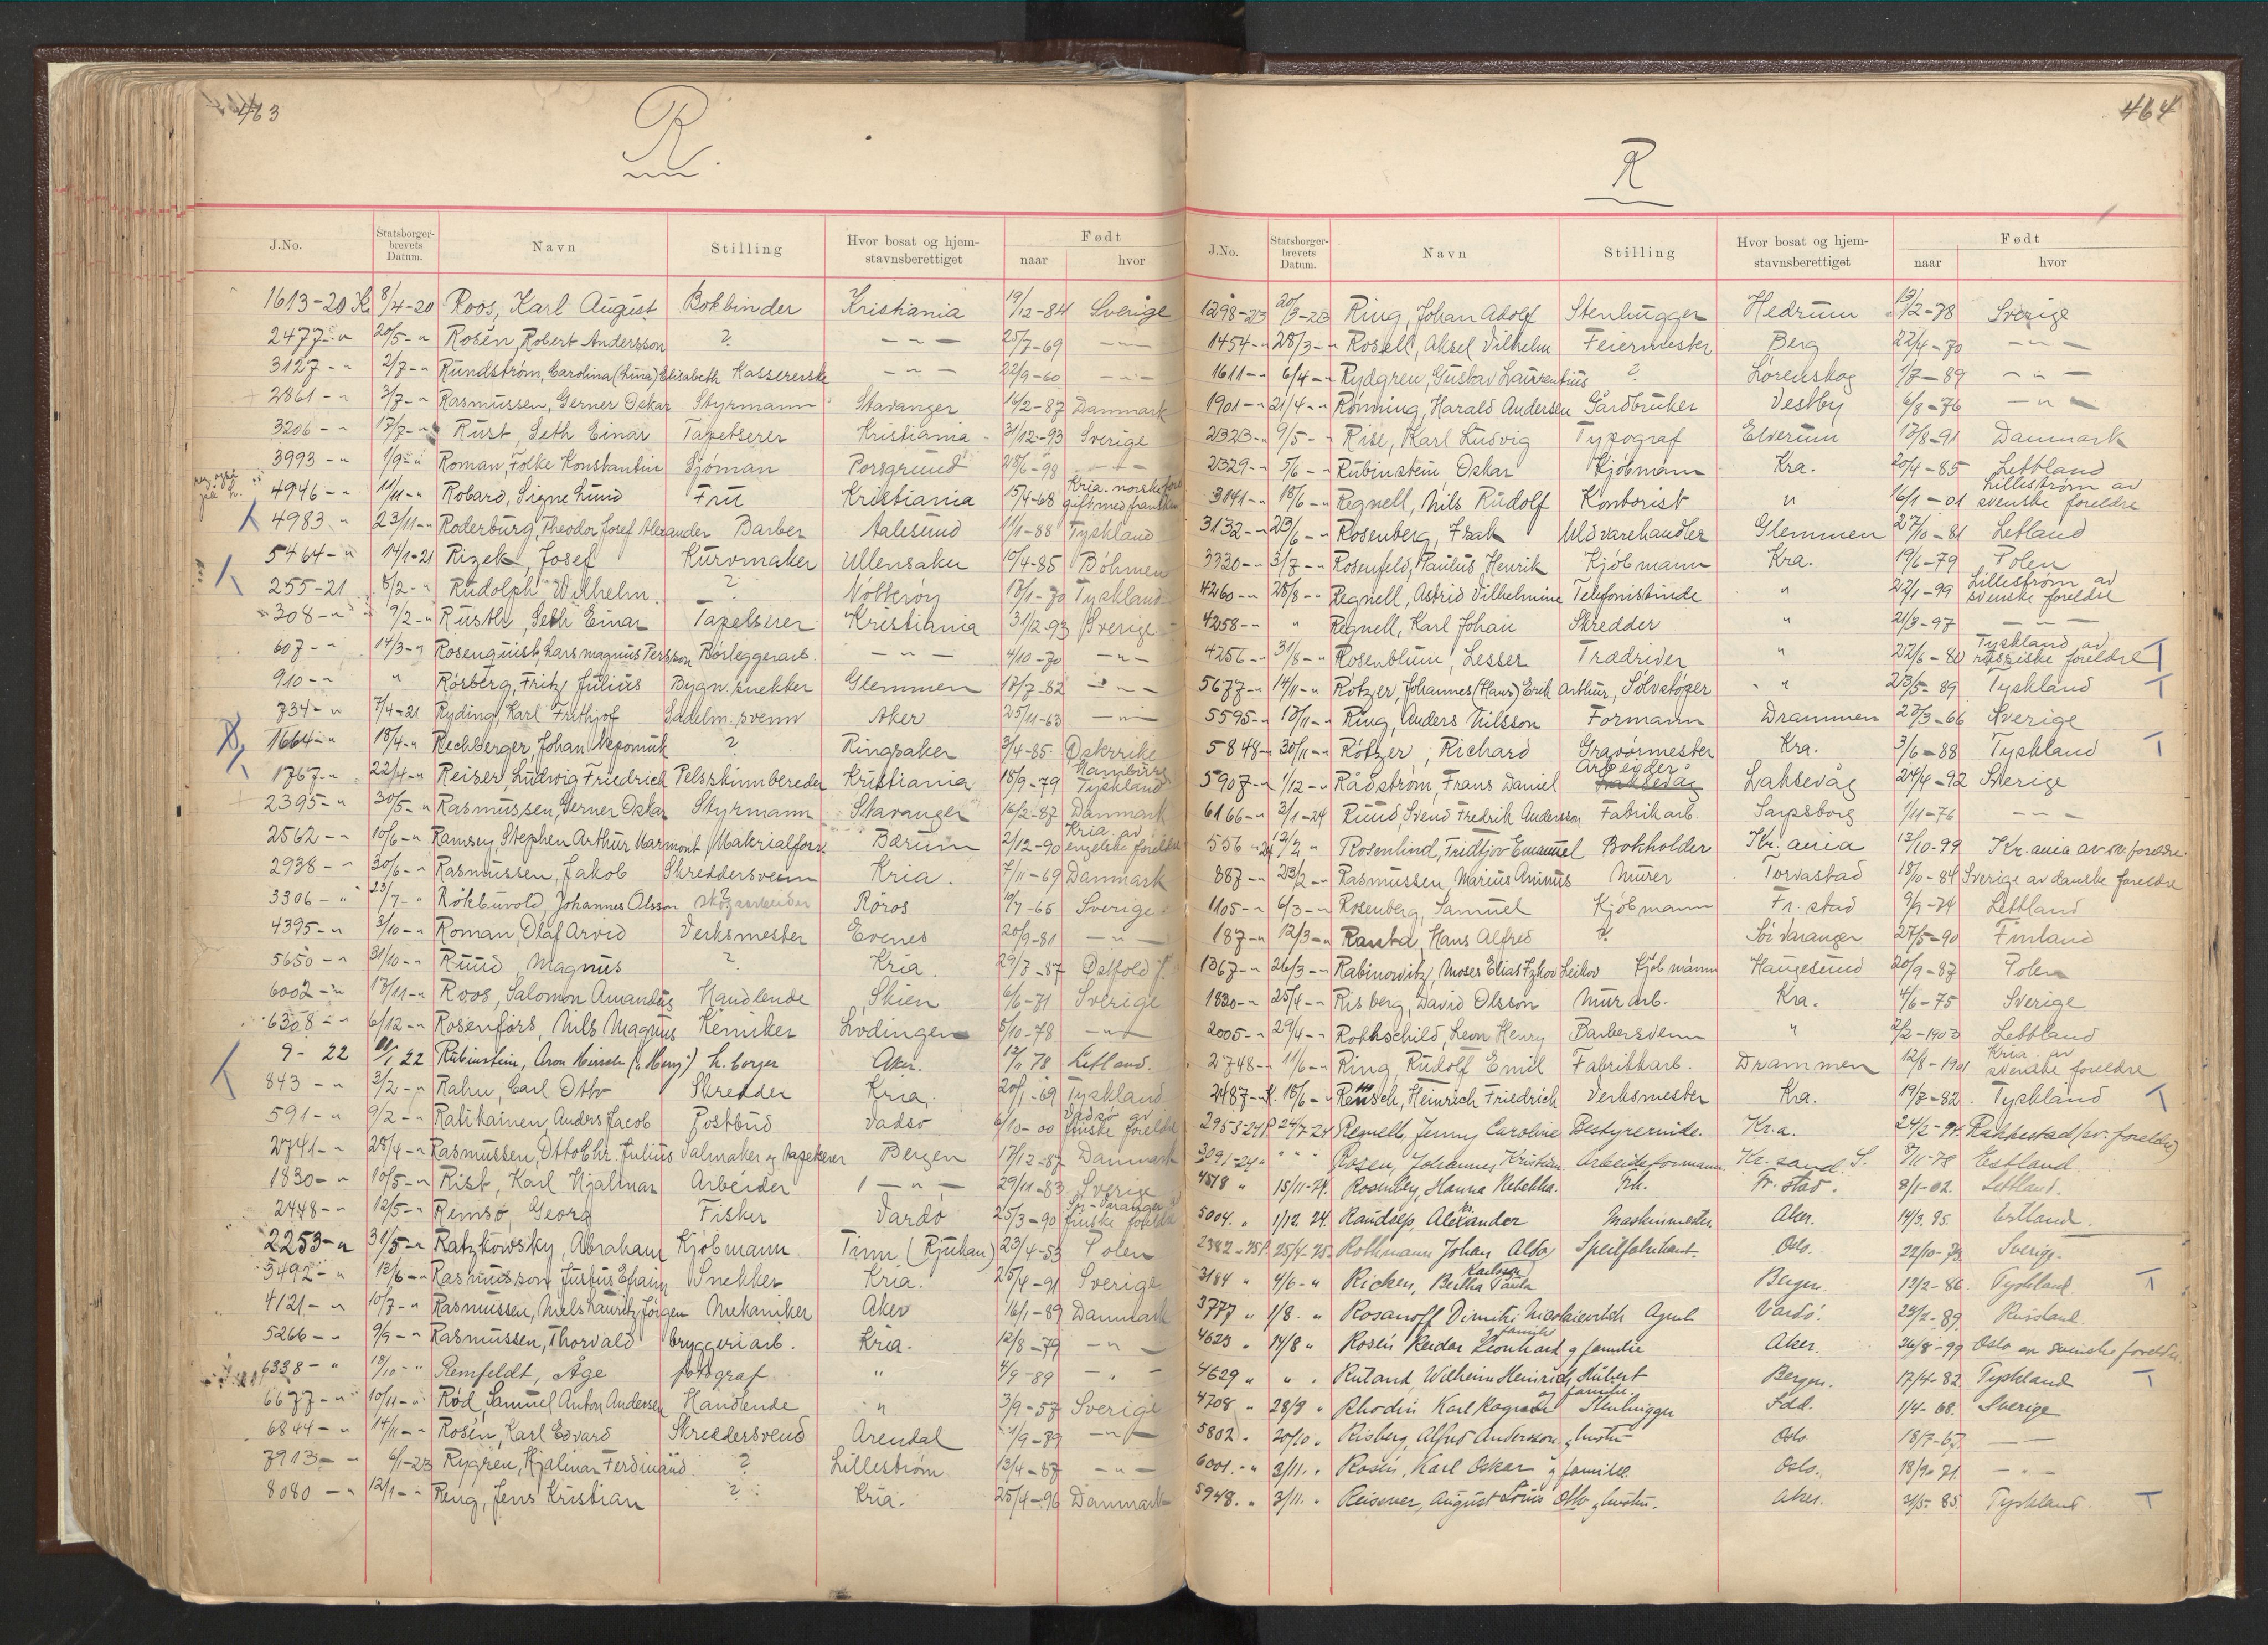 463
R.
J.No. Statsborgerbrevets Datum. Navn Stilling Hvor bosat og hjemstavnsberettiget Født naar hvor
1613-20 K 8/4-20 Roos, Karl August Bokbinder Kristiania 19/12-84 Sverige
2477-" 20/5-" Rosén, Robert Andersson ? -"- 25/7-69 -"-
3127-" 2/7-" Rundström, Carolina (Lina) Elisabeth Kassererske -"- 22/9-60 -"-
2861-" 3/7-" Rasmussen, Gerner Oskar Styrmann Stavanger 16/2-87 Danmark
3206-" 17/7-" Rust, Seth Einar Tapetserer Kristiania 31/12-93 Sverige
3993-" 1/9-" Roman, Folke Konstantin Sjöman Porsgrund 28/6-98 -"-
4946-" 11/11-" Robard, Signe Lund Fru Kristiania 15/4-68 Kria. norske
gift med
4983 " 23/11-" Roderburg, Theodor Josef Alexander Barber Aalesund 11/1-88 Tyskland
5464-" 14/1-21 Rizek, Josef Kurvmaker Ullensaker 10/4-85 Böhmen
255-21 8/2-" Rudolph Wilhelm ? Nötterøy 13/1-70 Tyskland
308-" 9/2-" Rusth, Seth Einar Tapetserer Kristiania 31/12-93 Sverige
607-" 14/3-" Rosenquist, Lars Magnus Persson Rörleggerarb. -"- 4/10-70 -"-
910-" " Rosberg, Fritz Julius Bygn.snekker Glemmen 17/7-82 -"-
734-" 7/4-21 Ryding, Karl Frithjof Sadelm.svenn Aker 25/11-63 -"-
1664-" 18/4-" Rechberger, Johan Nepomuk ? Ringsaker 3/4-85 Østerrike
1767-" 22/4-" Reiser, Ludwig Friedrich Pelsskinnbereder Kristiania 18/9-79 Hamburg
Tyskland
2395-" 30/5-" Rasmussen, Gerner Oskar Styrmann Stavanger 16/2-87 Danmark
2562-" 10/6-" Ramsey, Stephen Arthur Marmont Materialforv. Bærum 2/12-90 Kria. av
engelske foreldre
2938-" 30/6-" Rasmussen, Jakob Skreddersvenn Kria. 7/11-69 Danmark
3306-" 23/7-" Rökbuvold, Johannes Olsson ? Röros 10/7-65 Sverige
4395-" 3/10-" Roman, Olaf Arvid Verksmester Evenes 20/9-81 -"-
5650-" 31/10-" Ruud, Magnus ? Kria. 29/7-87 Østfold
6002-" 17/11-" Roos, Salomon Amandus Handlende Skien 6/6-71 Sverige
6308-" 6/12-" Rosenfors, Nils Magnus Kemiker Lødingen 5/10-78 -"-
9-22 22 Rubinstein, Aron Hirsch (Henry) h. borger Aker. 78 Letland.
843-" 3/2-" Rahn, Carl Otto Skredder Kria. 20/1-69 Tyskland
591-" 9/2-" Ratikainen, Anders Jacob Postbud Vadsø 6/10-00 Vadsø av
finske foreldre
2741-" 28/4-" Rasmussen, Otto Chr. Julius Salmaker og tapetserer Bergen 17/12-87 Danmark
1830-" 10/5-" Rist, Karl Hjalmar Arbeider -"- 29/11-83 Sverige
2448-" 12/5-" Remsö, Georg Fisker Vardö 25/3-90 Sør-Varanger av
finske foreldre
2253-" 31/5-" Ratzkowsky, Abraham Kjöbmann Tinn (Rjukan) 23/4-53 Polen
3492-" 13/6-" Rasmusson, Justus Efraim Snekker Kria. 25/4-91 Sverige
4121-" 10/7-" Rasmussen, Niels Lauritz Jörgen Mekaniker Aker 16/1-89 Danmark
5266-" 9/9-" Rasmussen, Thorvald bryggeriarb. Kria. 12/8-79 -"-
6338-" 18/10-" Remfeldt, Åge fotograf " 4/9-89 -"-
6677-" 10/11-" Rød, Samuel Anton Andersen Handlende " 3/9-57 Sverige
6844-" 14/11-" Rosén, Karl Edvard Skreddersvend Arendal 1/9-79 -"-
7913-" 6/1-23 Rygren, Hjalmar Ferdinand ? Lillestrøm 13/4-87 -"-
8080-" 12/1-" Reng, Jens Kristian ? Kria. 25/4-96 Danmark
464
R
J.No. Statsborgerbrevets Datum. Navn Stilling Hvor bosat og hjemstavnsberettiget Født naar hvor
1298-23 20/3-23 Ring, Johan Adolf Stenhugger Hedrum 12/2-78 Sverige
1454-" 28/3-" Rosell, Aksel Vilhelm Feiermester Berg 22/4-70 -"-
1611-" 6/4-" Rydgren, Gustav Laurentius ? Lørenskog 1/7-89 -"-
1901-" 21/4-" Rönning, Harald Andersen Gårdbruker Vestby 6/8-76 -"-
2323-" 9/5-" Rise, Karl Ludvig Typograf Elverum 13/8-91 Danmark
2329-" 5/6-" Rubinstein, Oskar Kjöbmann Kra. 20/4-85 Lettland
3141-" 18/6-" Regnell, Nils Rudolf Kontorist " 16/1-01 Lillestrøm av
svenske foreldre
3132-" 23/6-" Rosenberg, Isak Uldvarehandler Glemmen 27/10-81 Letland
3330-" 3/7-" Rosenfeld, Paulus Henrik Kjöbmann Kra. 19/6-79 Polen
4260-" 28/8-" Regnell, Astrid Vilhelmine Telefonistinde " 22/1-99 Lillestrøm av
svenske foreldre
4258-" " Regnell, Karl Johan Skredder " 21/3-97 -"-
4256-" 31/8-" Rosenblum, Lesser Trædriver " 22/6-80 Tyskland av
russiske foreldre T
5677-" 14/11-" Rötzer, Johannes (Hans) Erik Arthur, Sölvstöper " 23/5-89 Tyskland T
5595-" 13/11-" Ring, Anders Nilsson Formann Drammen 23/3-66 Sverige
5848-" 30/11-" Rötzer, Richard Gravörmester Kra. 3/6-88 Tyskland T
5907-" 1/12-" Rådström, Frans Daniel Arbeider Laksevåg Laksevåg 24/4-92 Sverige
6166-" 3/1-24 Ruud, Svend Fredrik Andersson Fabrikarb. Sarpsborg 1/11-76 -"-
556-24 12/2 " Rosenlind, Fridtjov Emanuel Bokholder Kr.ania 13/10-99 Kr.ania av sv. foreldre.
887-" 23/2-" Rasmussen, Marius Aninus Murer Torvastad 18/10-84 Sverige av danske foreldre
1105-" 6/3-" Rosenberg, Samuel Kjöbmann Fr.stad 9/9-74 Lettland
187-" 12/3-" Ranta, Hans Alfred ? Sör Varanger 27/5-90 Finland
1367-" 26/3-" Rabinowitz, Moses Elias Izkov Leikov Kjöbmann Haugesund 20/9-87 Polen
1830-" 25/4-" Risberg, David Olsson Murarb. Kra. 4/6-75 Sverige
2005-" 29/4-" Rothschild, Leon Henry Barbersvenn " 2/2-1903 Lettland
2748-" 11/6-" Ring, Rudolf Emil Fabrikkarb. Drammen 12/8-1901 Kria. av
svenske foreldre
2487-" K. 18/6-" Rensch, Heinrich Friedrich Verksmester Kra. 19/7-82 Tyskland T
2953-24 P 24/7-24 Regnell, Jenny Caroline Bestyrerinde. Kr.a. 24/2-98 Rakkestad (sv. foreldre)
3091-24 " " " Rosen, Johannes Kristian. Arbeidsformann Kr.sand. S. 8/11-78 Estland.
4518 " 15/11-24. Rosenberg, Hanna Rebekka. Frk. Fr.stad. 8/1-02. Lettland.
5004. " 1/12 24. Randsep, Alexander Maskinmester. Aker. 14/3 95. Estland.
2382-25 P. 25/4-25 Rothmann Johan Aldor Speilfabrikant. Oslo. 22/10-73. Sverige.
3184 " 4/6-" Ricken, Bertha Karlsson Paula Bergen. 12/2-86. Tyskland. T
3777 " 1/8. " Rosanoff Dimitri Nicolaievitch Agent Vardö. 24/2-89. Russland.
4623 " 14/8 " Rosén Reidar Leonhard og familie Aker. 26/8-99 Oslo av svenske foreldre
4629 " " " Rutand, Wilhelm Heinrich Hubert og familie. Bergen. 17/4-82 Tyskland T
4708 " 28/8 " Rhodin Karl Ragnar Stenhugger Fdd. 1/4-68. Sverige
5802 " 20/10 " Risberg, Alfred Andersson og hustru Oslo 18/7-67. -"-
6001.-" 3/11. " Rosén, Karl Oskar og familie. Oslo. 18/9-71. -"-
5948. " 3/11. " Reisener, August Louis Otto og hustru. Aker. 31/5-85. Tyskland. T